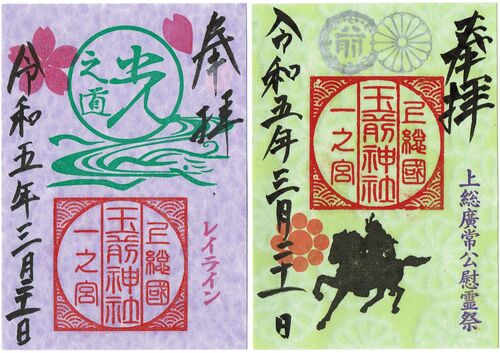 奉拝
光
之道
上総國
玉前神社
一之宮
レイライン
令和五年三月二十一日
奉拝
前
上総國
玉前神社
一之宮
上総廣常公慰霊祭
令和五年三月二十一日